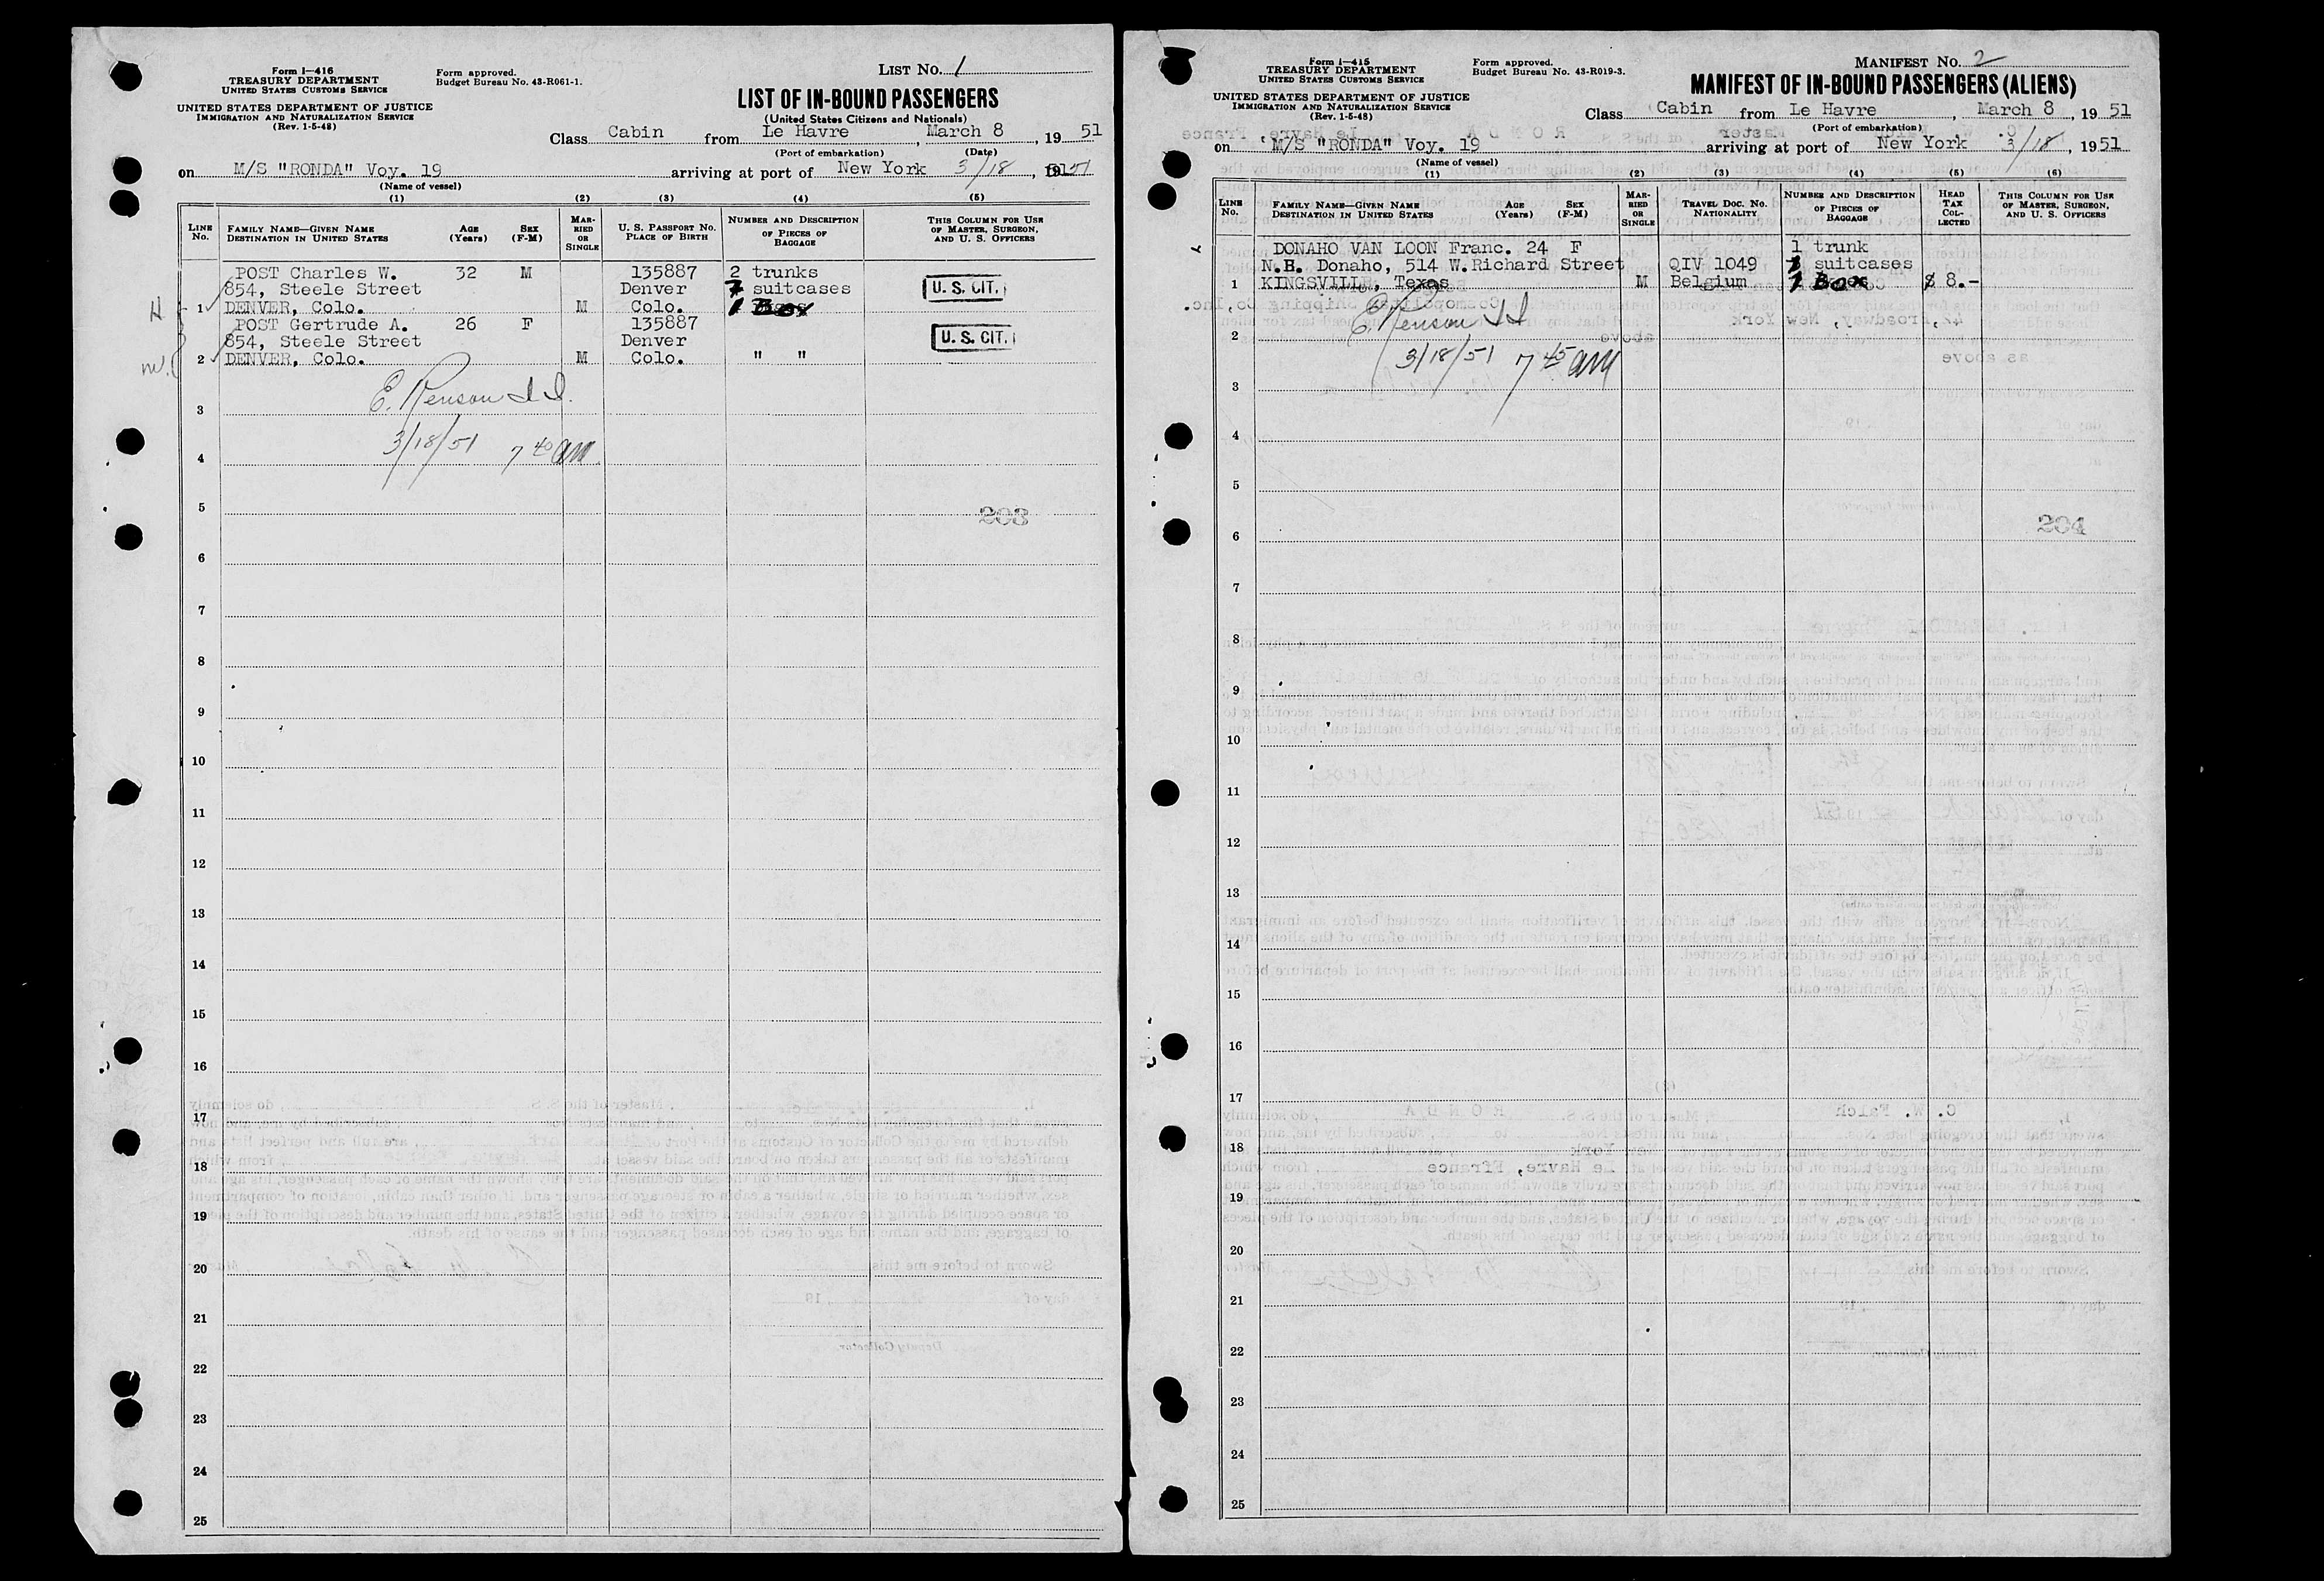 Form I—416
TREASURY DEPARTMENT
UNITED STATES CUSTOMS SERVICE
UNITED STATES DEPARTMENT OF JUSTICE
IMMIGRATION AND NATURALIZATION SERVICE
(Rev. 1-5-48)
Form approved.
Budget Bureau No. 43-R061-1.
LIST NO. 1
LIST OF IN-BOUND PASSENGERS
(United States Citizens and Nationals)
Class Cabin from Le Havre, March 8, 19 51
(Port of embarkation) (Date)
on M/S "RONDA" Voy. 19 arriving at port of New York 3/18, 1951
(Name of vessel)
(1) (2) (3) (4) (5)
LINE No. FAMILY NAME—GIVEN NAME DESTINATION IN UNITED STATES AGE (Years) SEX (F-M) MARRIED OR SINGLE U. S. PASSPORT NO. PLACE OF BIRTH NUMBER AND DESCRIPTION OF PIECES OF BAGGAGE THIS COLUMN FOR USE OF MASTER, SURGEON, AND U. S. OFFICERS
POST Charles W. 32 M 135887 2 trunks
854, Steele Street Denver suitcases U. S. CIT.
1 DENVER, Colo. M Colo. 1 Box
POST Gertrude A. 26 F 135887
854, Steele Street Denver U. S. CIT.
2 DENVER, Colo. M Colo. " "
E. Renson I I.
3
3/18/51 7 40 am
4
5
203
6
7
8
9
10
11
12
13
14
15
16
17
18
19
20
21
22
23
24
25
Form I—415
TREASURY DEPARTMENT
UNITED STATES CUSTOMS SERVICE
UNITED STATES DEPARTMENT OF JUSTICE
IMMIGRATION AND NATURALIZATION SERVICE
(Rev. 1-5-48)
Form approved.
Budget Bureau No. 43-R019-3.
MANIFEST NO. 2
MANIFEST OF IN-BOUND PASSENGERS (ALIENS)
Class Cabin from Le Havre, March 8, 19 51
(Port of embarkation)
on M/S "RONDA" Voy. 19 arriving at port of New York 3/18, 1951
(Name of vessel)
(1) (2) (3) (4) (5) (6)
LINE No. FAMILY NAME—GIVEN NAME DESTINATION IN UNITED STATES AGE (Years) SEX (F-M) MARRIED OR SINGLE TRAVEL DOC. NO. NATIONALITY NUMBER AND DESCRIPTION OF PIECES OF BAGGAGE HEAD TAX COLLECTED THIS COLUMN FOR USE OF MASTER, SURGEON, AND U. S. OFFICERS
DONAHO VAN LOON Franc. 24 F 1 trunk
N.B. Donaho, 514 W.Richard Street QIV 1049 suitcases
1 KINGSVILLE, Texas M Belgium 1 Box $ 8.-
E. Renson I I
2
3/18/51 7 45 am
3
4
5
6
204
7
8
9
10
11
12
13
14
15
16
17
18
19
20
21
22
23
24
25